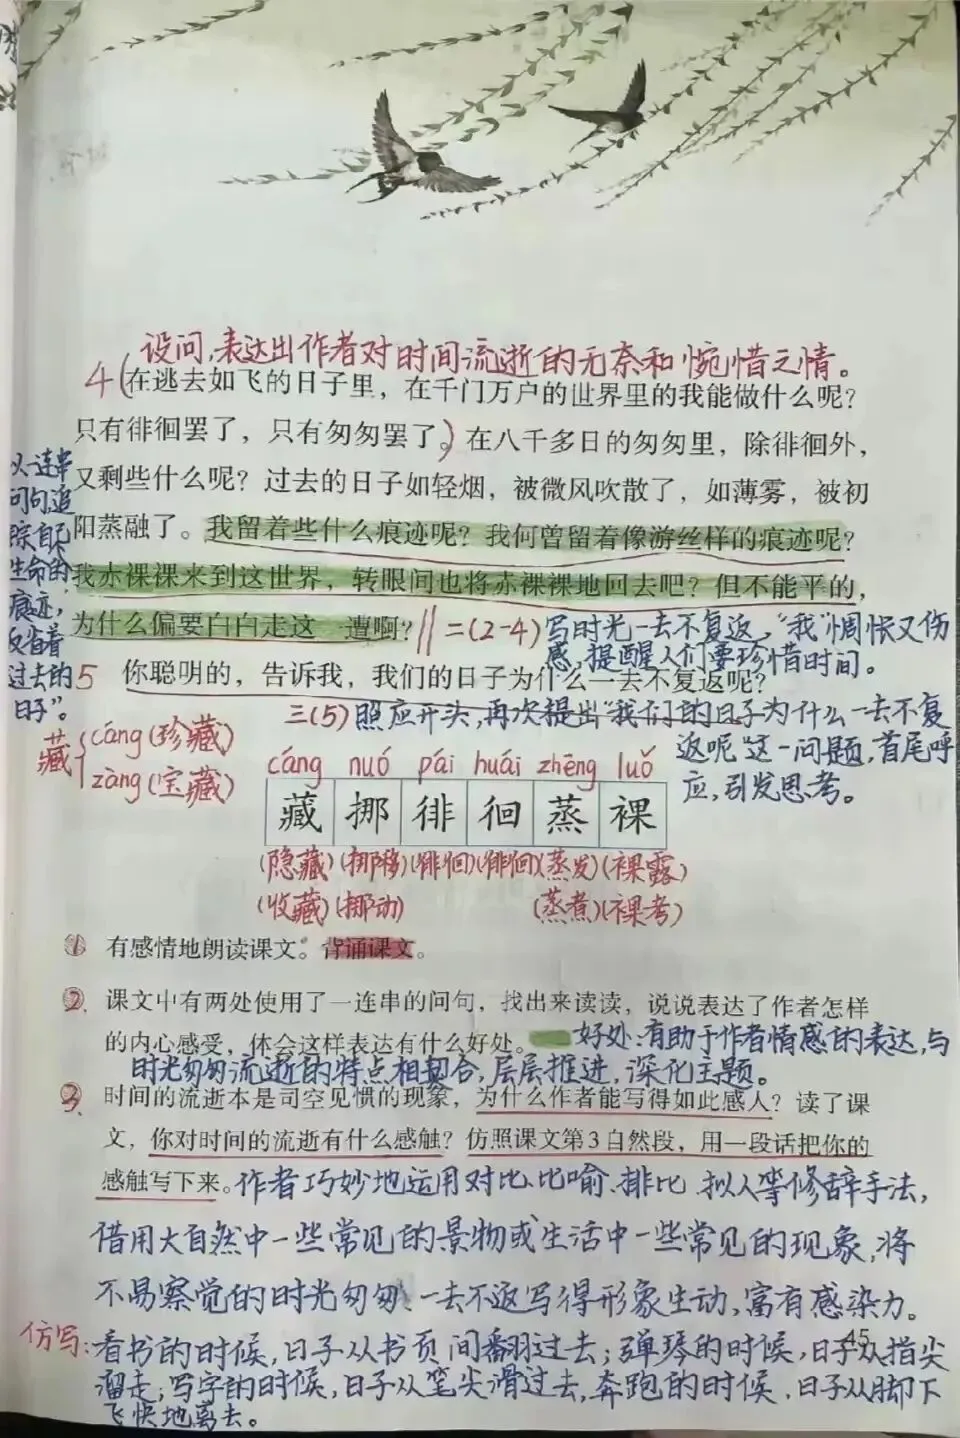 设问,表达出作者对时间流逝的无奈和惋惜之情。
4(在逃去如飞的日子里，在千门万户的世界里的我能做什么呢？
只有徘徊罢了，只有匆匆罢了。)在八千多日的匆匆里，除徘徊外，
又剩些什么呢？过去的日子如轻烟，被微风吹散了，如薄雾，被初
阳蒸融了。我留着些什么痕迹呢？我何曾留着像游丝样的痕迹呢？
我赤裸裸来到这世界，转眼间也将赤裸裸地回去吧？但不能平的，
为什么偏要白白走这一遭啊？
以一连串
问句追
踪自己
生命的
痕迹,
反省着
过去的
日子"。
二(2-4)写时光一去不复返，"我"惆怅又伤
感,提醒人们要珍惜时间。
5 你聪明的，告诉我，我们的日子为什么一去不复返呢？
三(5)照应开头,再次提出"我们的日子为什么一去不复
返呢"这一问题,首尾呼
应,引发思考。
藏
cáng(珍藏)
zàng(宝藏)
cáng nuó pái huái zhēng luǒ
藏 挪 徘 徊 蒸 裸
(隐藏)(挪移)(徘徊)(徘徊)(蒸发)(裸露)
(收藏)(挪动) (蒸煮)(裸考)
1 有感情地朗读课文。背诵课文。
2 课文中有两处使用了一连串的问句，找出来读读，说说表达了作者怎样
的内心感受，体会这样表达有什么好处。
好处:有助于作者情感的表达,与
时光匆匆流逝的特点相契合,层层推进,深化主题。
3 时间的流逝本是司空见惯的现象，为什么作者能写得如此感人？读了课
文，你对时间的流逝有什么感触？仿照课文第3自然段，用一段话把你的
感触写下来。
作者巧妙地运用对比、比喻、排比、拟人等修辞手法,
借用大自然中一些常见的景物或生活中一些常见的现象,将
不易察觉的时光匆匆、一去不返写得形象生动,富有感染力。
仿写:看书的时候,日子从书页间翻过去;弹琴的时候,日子从指尖
溜走;写字的时候,日子从笔尖滑过去,奔跑的时候,日子从脚下
飞快地离去。
45